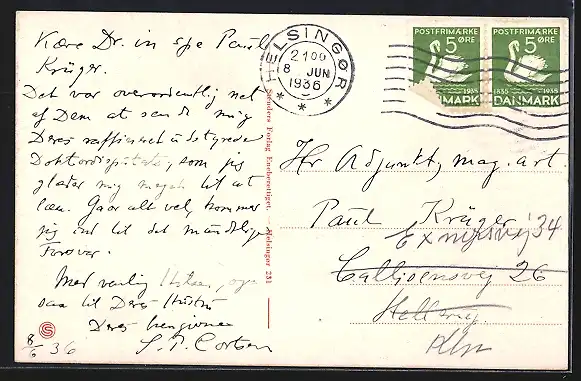 Kære Dr. in spe Paul
Krüger.
Det var overordentlig net
af Dem at sende mig
Deres raffineret udstyrede
Doktordisputats, som jeg
glæder mig meget til at
læse. Gaar alt vel, kommer
jeg ind til det mundtlige
Forsvar.
Med venlig Hilsen, ogsaa
til Deres Hustru
Deres hengivne
8/6 36
HELSINGØR
2100
8 JUN
1936
POSTFRIMÆRKE
5 ØRE
MARK
POSTFRIMÆRKE
5 ØRE
1835 1935
DANMARK
Stenders Forlag Eneberettiget. Helsingør 251
Hr Adjunkt, mag. art.
Paul Krüger
34
26